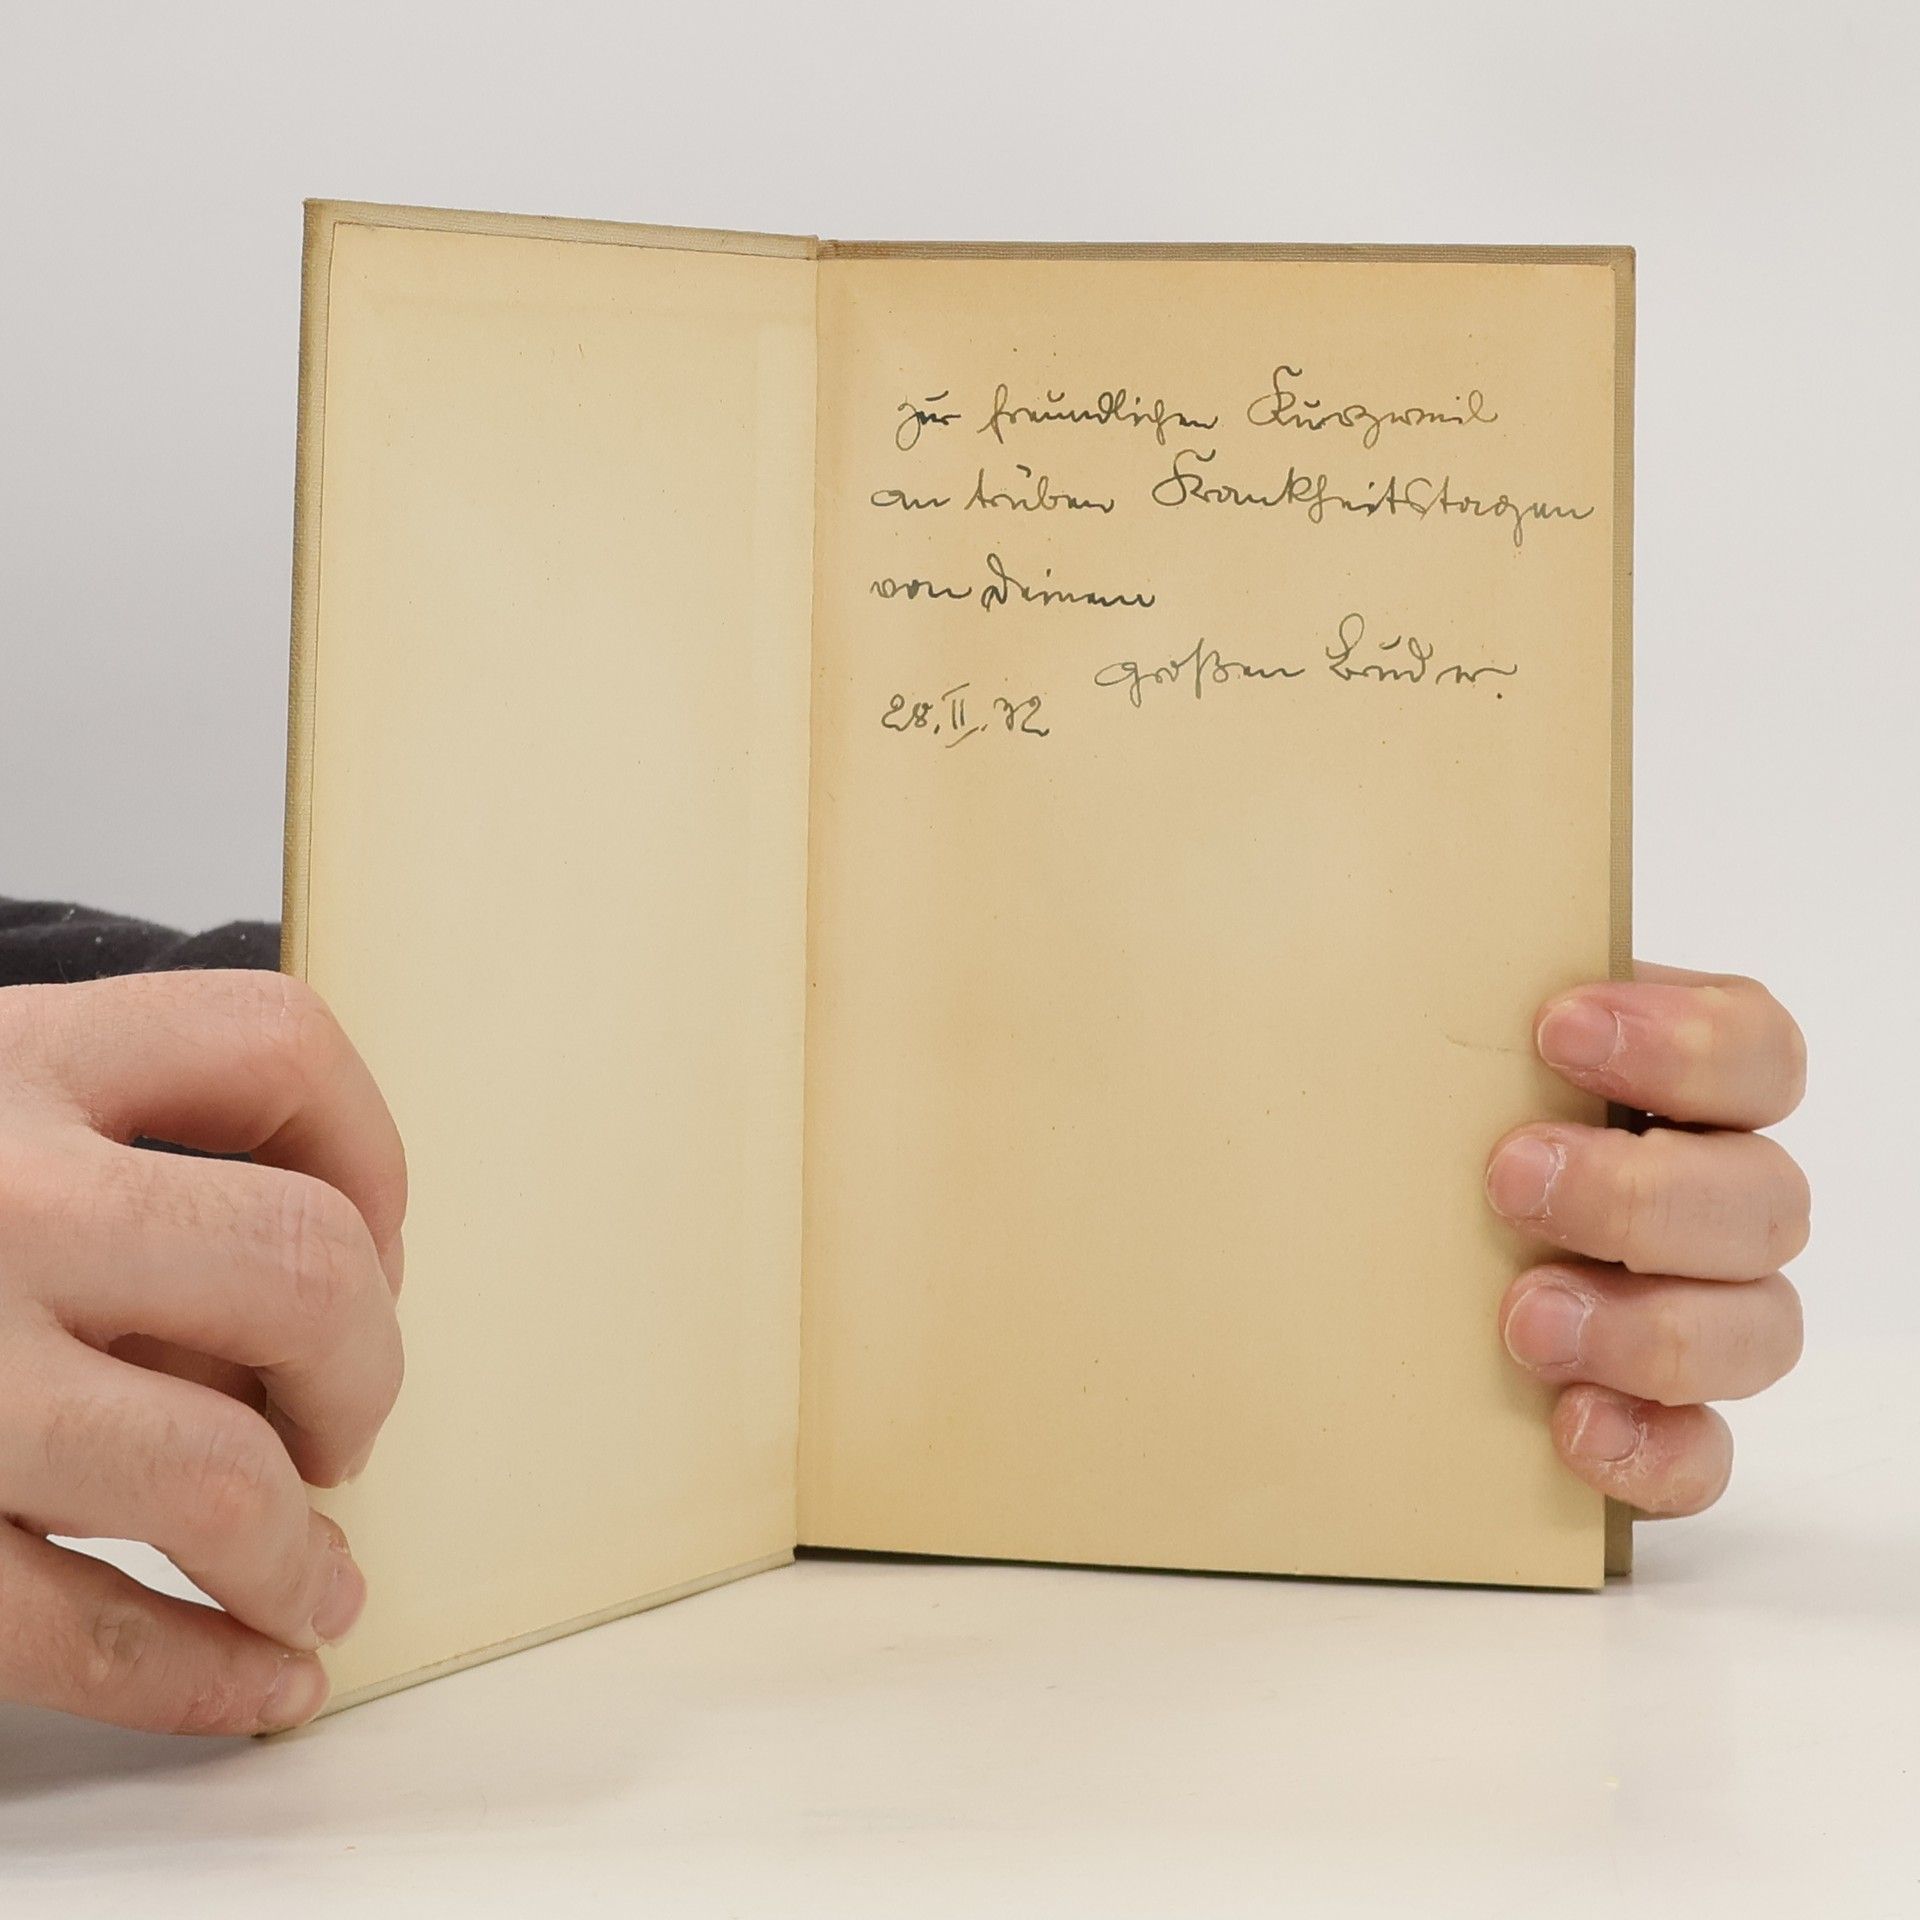 zur freundlichen Kurzweil
an trüben Krankheitstagen
von Deinem
großen Bruder.
28. II. 32